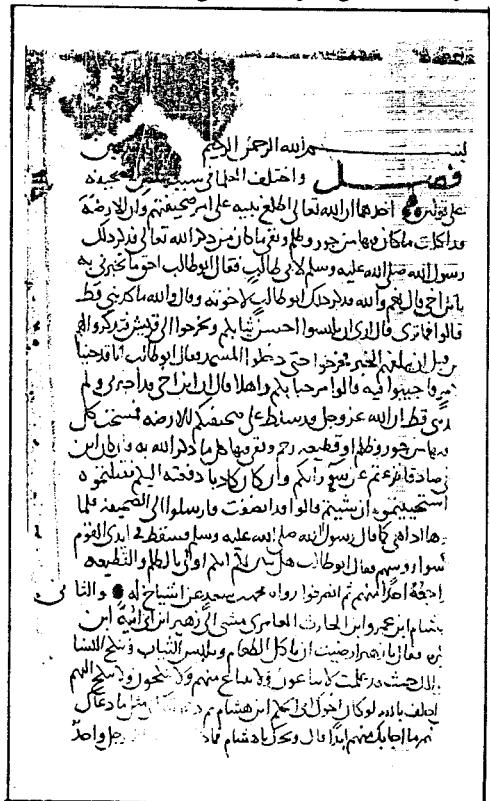 بسم الله الرحمن الرحيم
فصل واختلف العلماء في سبب نقض الصحيفة
على قولين احدهما ان الله تعالى اطلع نبيه على امر صحيفتهم وان الارضة
قد اكلت ما كان فيها من جور وظلم وبقي ما كان من ذكر الله تعالى فذكر ذلك
رسول الله صلى الله عليه وسلم لابي طالب فقال ابو طالب احق ما تخبرني به
يا بن اخي قال نعم والله فذكر ذلك ابو طالب لاخوته وقال والله ما كذبني قط
قالوا فما ترى قال ارى ان تلبسوا احسن ثيابكم وتخرجوا الى قريش فتذكروا لهم
قبل ان يبلغهم الخبر فخرجوا حتى دخلوا المسجد فقال ابو طالب انا قد جئنا
فاجيبوا فيه قالوا مرحبا بكم واهلا قال ان ابن اخي قد اخبرني ولم
قط ان الله عز وجل قد سلط على صحيفتكم الارضة فمسحت كل
فيها من جور وظلم او قطيعة رحم وبقي فيها كل ما ذكر الله به فان كان ابن
صادقا نزعتم عن سوء رأيكم وان كان كاذبا دفعته اليكم فقتلتموه
استحييتموه ان شيتم قالوا قد انصفت فارسلوا الى الصحيفة فلما
اذا هي كما قال رسول الله صلى الله عليه وسلم فسقط في ايدي القوم
رءوسهم فقال ابو طالب هل تبين لكم انكم اولى بالظلم والقطيعة
احد منهم ثم انصرفوا رواه محمد بن سعد عن اشياخ له والثاني
هشام ابن عمرو ابن الحارث العامري مشى الى زهير ابن ابي امية ابن
فقال يا زهير ارضيت ان تاكل الطعام وتلبس الثياب وتنكح النساء
حيث قد علمت لا يباعون ولا يبتاع منهم ولا ينكحون ولا ينكح اليهم
احلف بالله لو كان اخوال ابي الحكم ابن هشام ثم دعوته الى مثل ما دعاك
ما اجابك منهم ابدا قال ويحك يا هشام فماذا رجل واحد